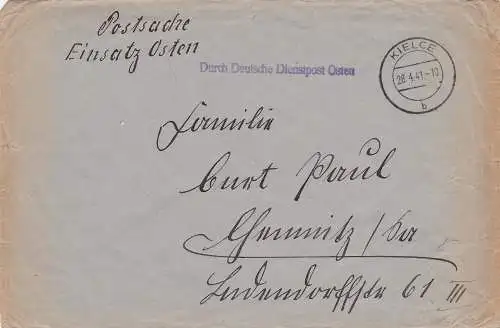 Postsache
Einsatz Osten
Durch Deutsche Dienstpost Osten
KIELCE
28.4.41.-10
b
Familie
Curt Paul
Chemnitz / Sa
Ludendorffstr 61 III